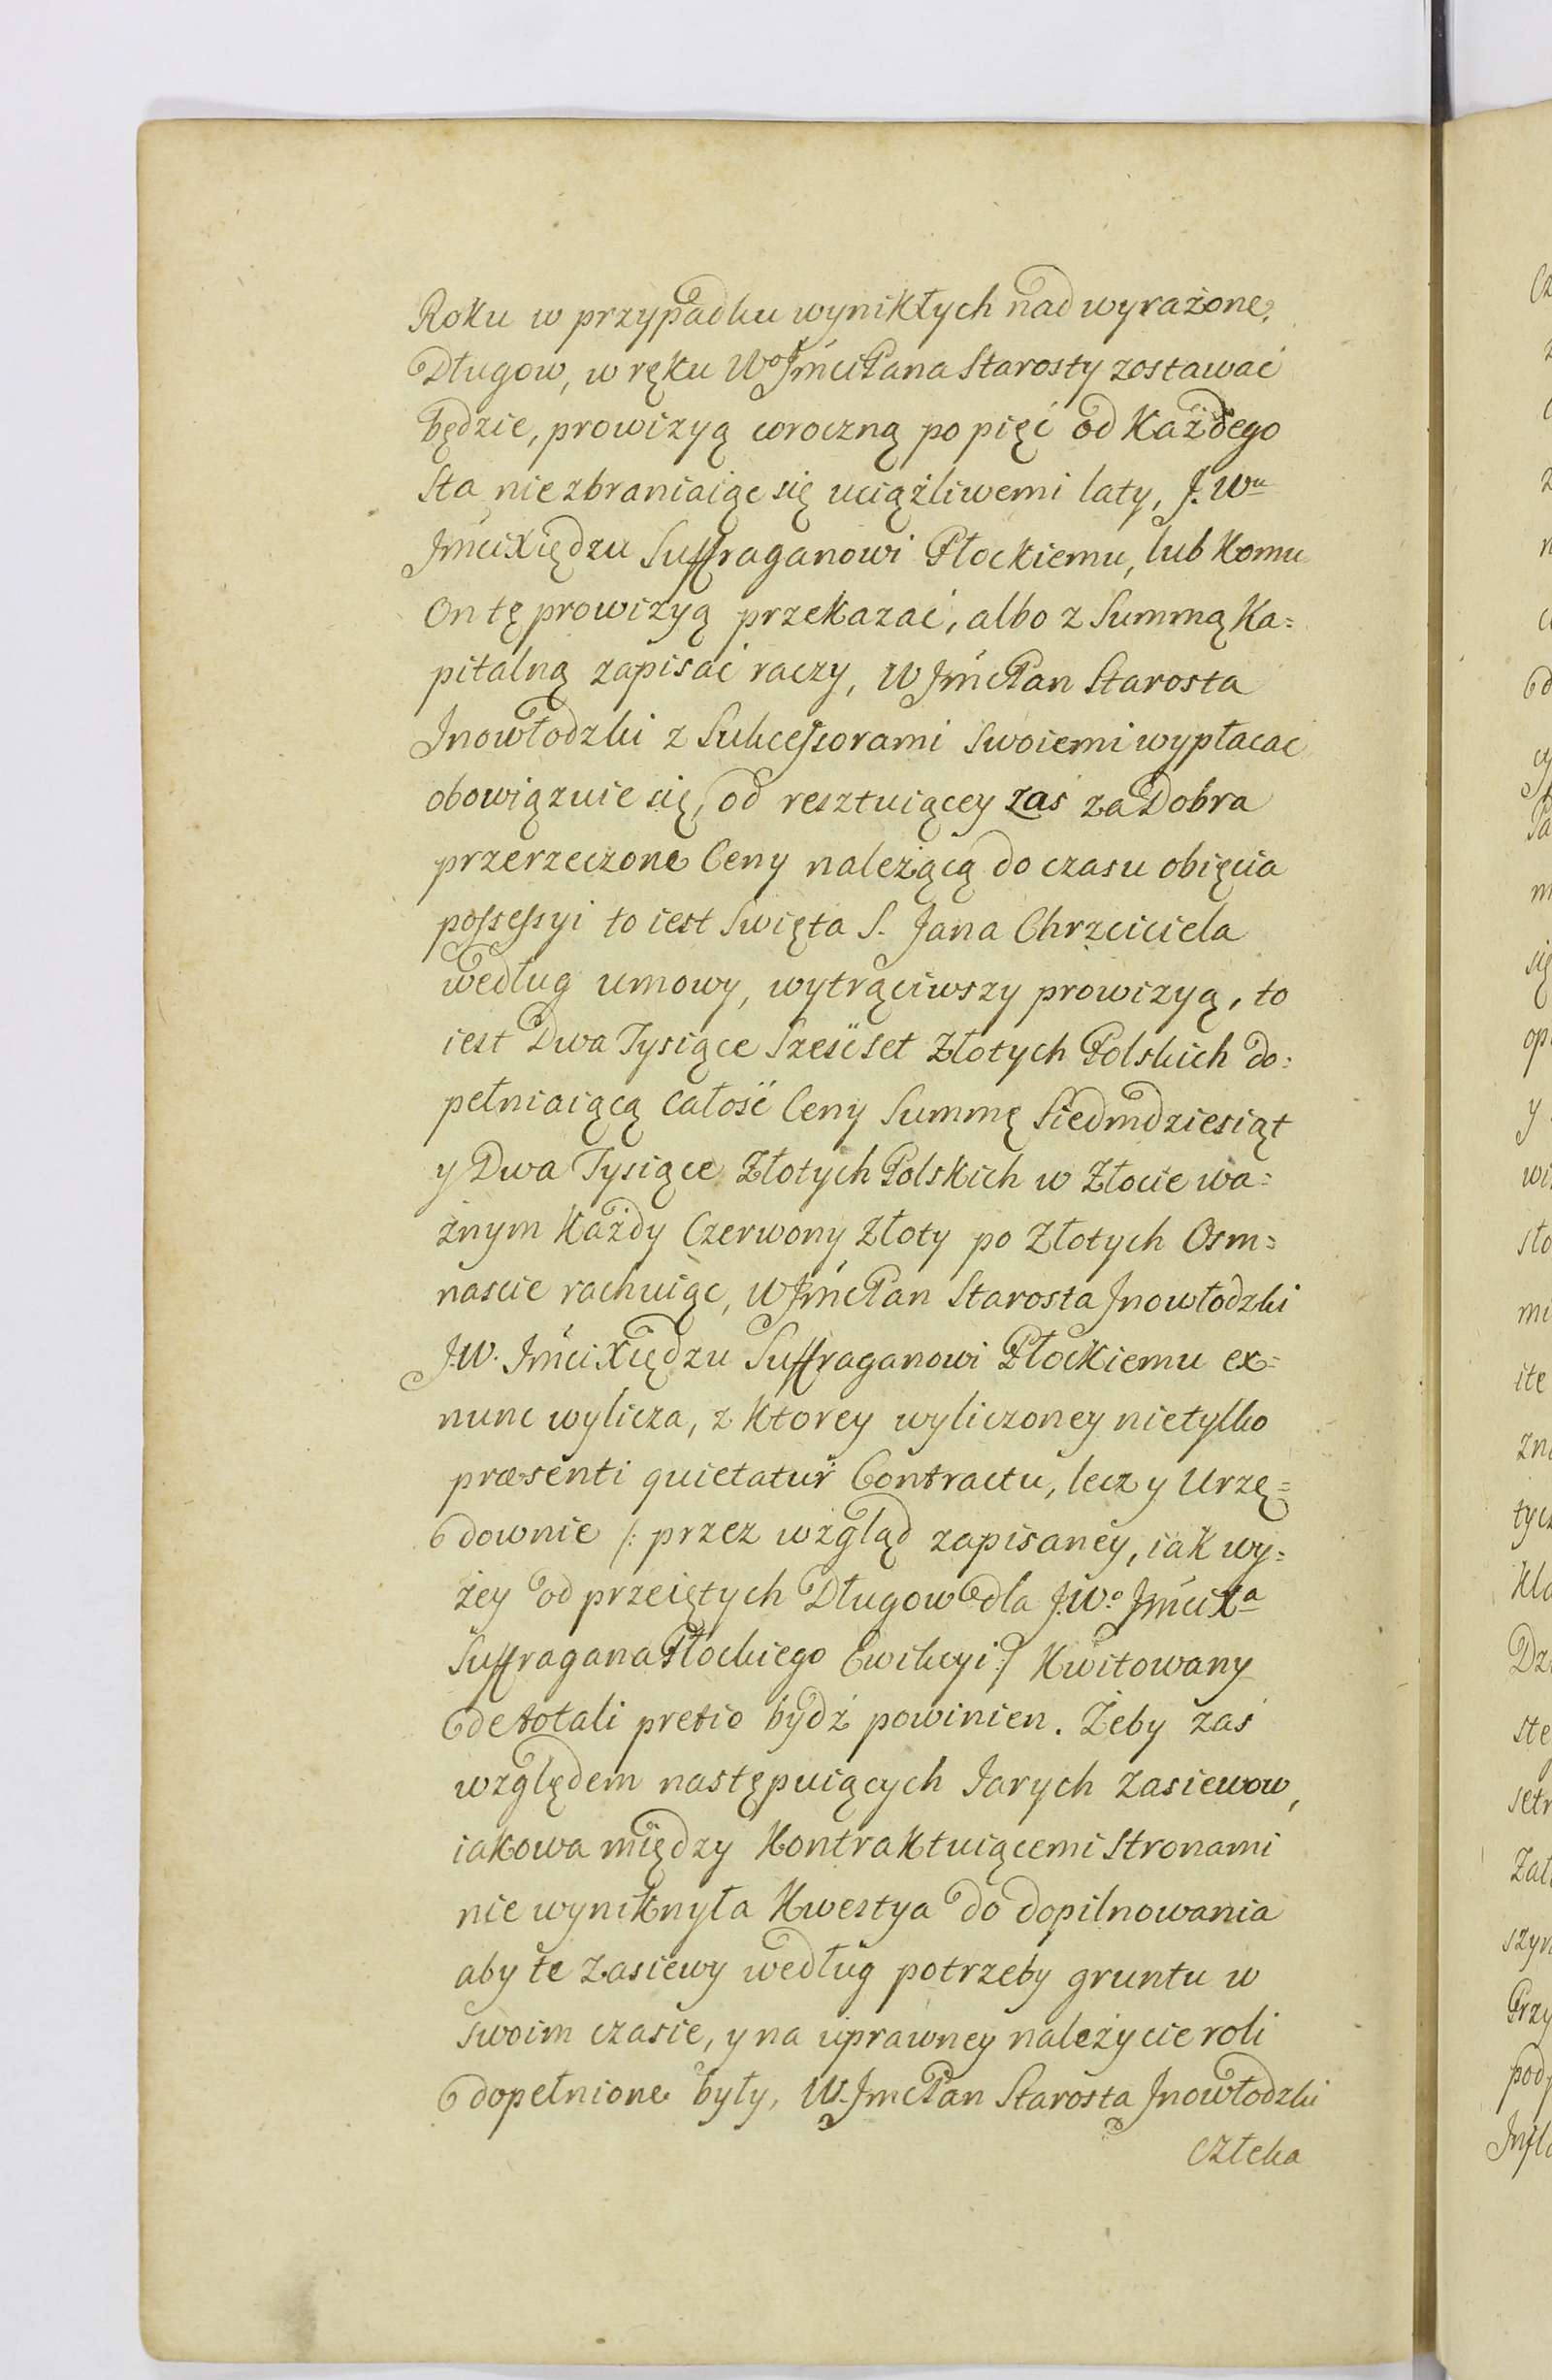 Roku w przypadku wynikłych nad wyrażone
Długow, w ręku Wo JmciPana Starosty zostawać
będzie, prowizyą coroczną po pięć od Każdego
Sta nie zbraniaiąc się uciążliwemi laty, J. Wu
JmciXiędzu Suffraganowi Płockiemu, lub Komu
On tę prowizyą przekazać, albo z Summą Ka=
pitalną zapisać raczy, W JmćPan Starosta
Jnowłodzki z Sukcessorami Swoiemi wypłacac
obowiązuie się, od resztuiącey zaś za Dobra
przerzeczone Ceny należącą do czasu obięcia
possessyi to iest Swięta S. Jana Chrzciciela
według umowy, wytrąciwszy prowizyą, to
iest Dwa Tysiące Sześćset Złotych Polskich do=
pełniaiącą całość Ceny Summę Siedmdziesiąt
y Dwa Tysiące Złotych Polskich w Złocie wa=
żnym Każdy Czerwony Złoty po Złotych Osm=
nascie rachuiąc, W JmćPan Starosta Jnowłodzki
J.W. JmciXiędzu Suffraganowi Płockiemu ex=
nunc wylicza, z Ktorey wyliczoney nietylko
præsenti quietatur Contractu, lecz y Urzę=
downie /: przez wzgląd zapisaney, iak wy=
żey od przeiętych Długow dla J.Wo JmciXa
Suffragana Płockiego Ewikcyi :/ Kwitowany
de totali pretio bydź powinien. Żeby zaś
względem następuiących Jarych zasiewow,
iakowa między Kontraktuiącemi Stronami
nie wyniknyła Kwestya do dopilnowania
aby te zasiewy według potrzeby gruntu w
swoim czasie, y na uprawney należycie roli
dopełnione były, W. JmćPan Starosta Jnowłodzki
człeka